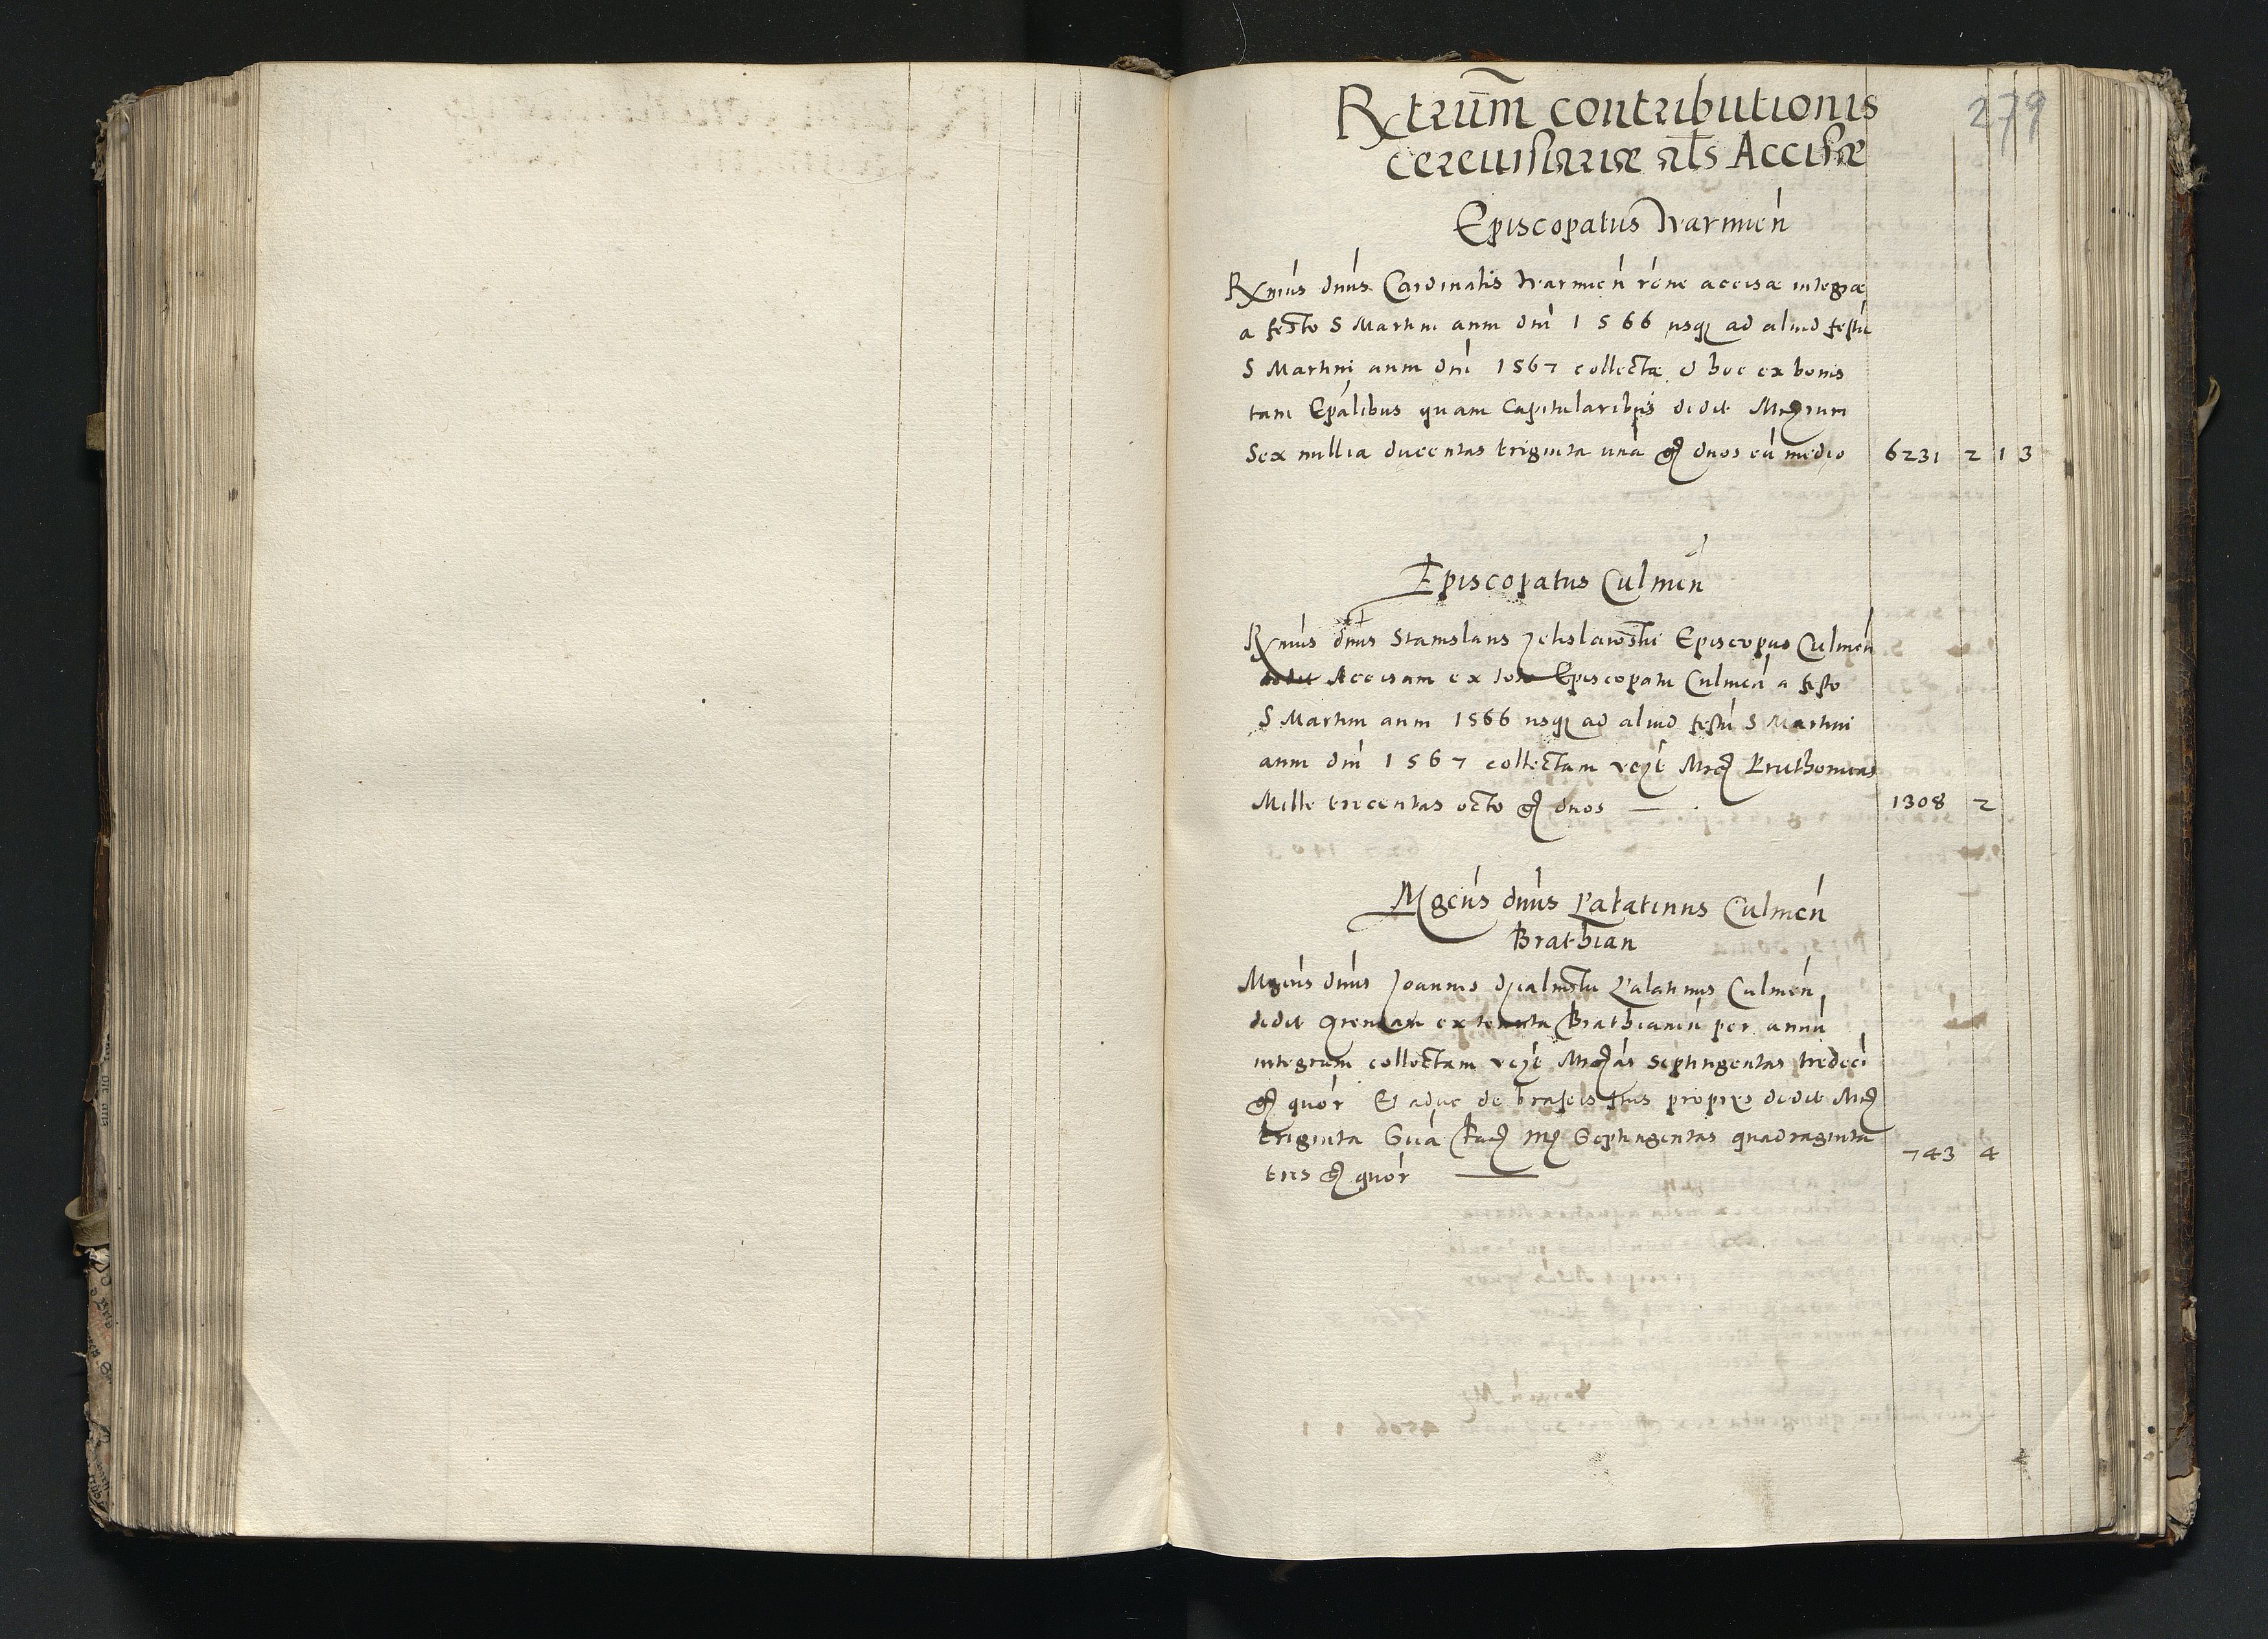 279
Rtrum contributionis
cerevisiariæ als Accisæ
Episcopatus Warmien
Rmus dnus Cardinalis Warmien rone accisæ integræ
a festo S Martini anni dni 1566 usq ad aliud festu
S Martini anni dni 1567 collectæ hoc ex bonis
tam Epalibus quam Capitularibus dedit
Sex millia ducentas triginta una g duos cu medio 6231 2 1 3
Episcopatus Culmen
Rmus dnus Stanislaus Zelislawski Episcopus Culmen
dedit Accisam ex toto Episcopatu Culmen a festo
S Martini anni 1566 usq ad aliud festu S Martini
anni dni 1567 collectam Mrc Pruthenicas
Mille trecentas octo g duos 1308 2
Mgcus dnus Palatinus Culmen
Brathian
Mgcus dnus Joannes Dzialinski Palatinus Culmen
dedit ex tenuta Brathianen per annu
integrum collectam Mrcas septingentas tredeci
g quor Et aduc de suis propriis dedit Mrc
triginta Sua fac Mrc Septingentas quadraginta
tres g quor 743 4